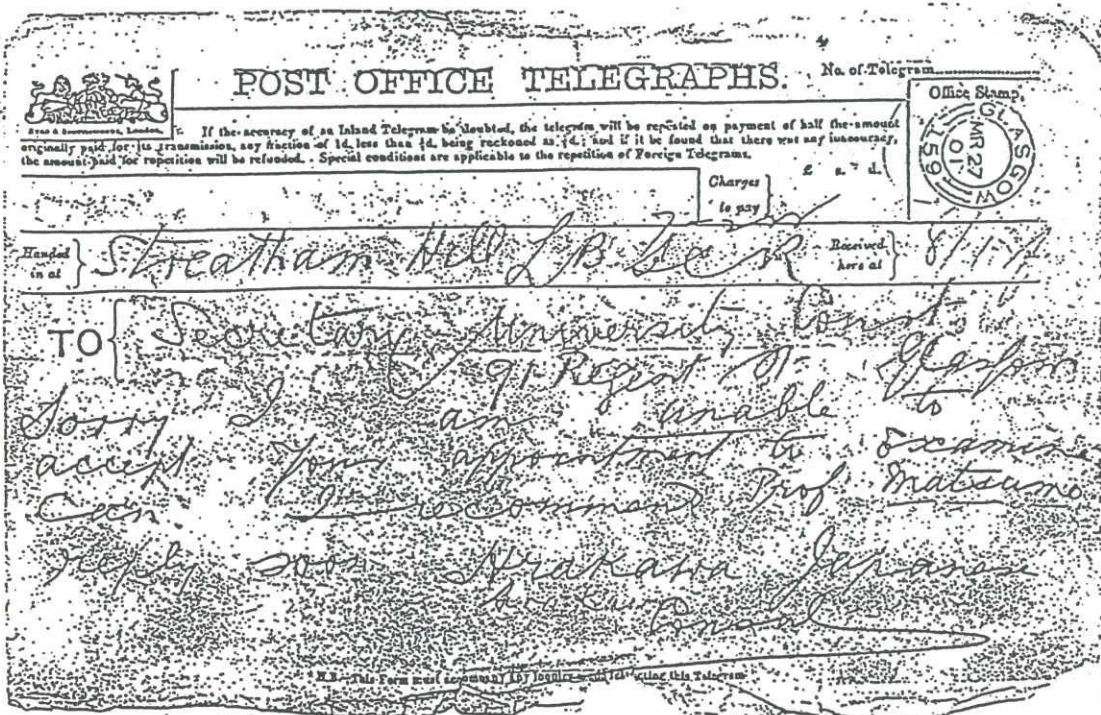 POST OFFICE TELEGRAPHS.
No. of Telegram
Office Stamp.
GLASGOW
MR 27
01
1599
Eyre & Spottiswoode, London.
If the accuracy of an Inland Telegram be doubted, the telegram will be repeated on payment of half the amount
originally paid for its transmission, any fraction of 1d. less than ½d. being reckoned as ½d.; and if it be found that there was any inaccuracy,
the amount paid for repetition will be refunded. Special conditions are applicable to the repetition of Foreign Telegrams.
Charges
to pay
£ s. d.
Handed
in at
Streatham Hill
Received
here at
TO
Secretary University Court
91 Regent St Glasgow
Sorry I am unable to
accept your appointment to examine
Can I recommend Prof Matsumo
reply soon Arakawa Japanese
Arakawa
Consul
N.B.—This Form must accompany any inquiry made respecting this Telegram.